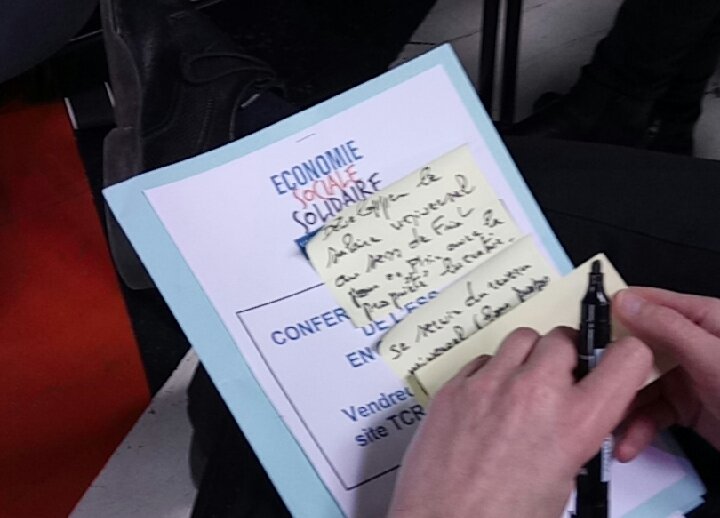 ECONOMIE
SOCIALE
SOLIDAIRE
Développer le
salaire universel
au sens de Friot
pour en finir avec la
propriété lucrative.
se servir du revenu
universel
CONFER
DE L'ESS
EN
Vendre
site TCR